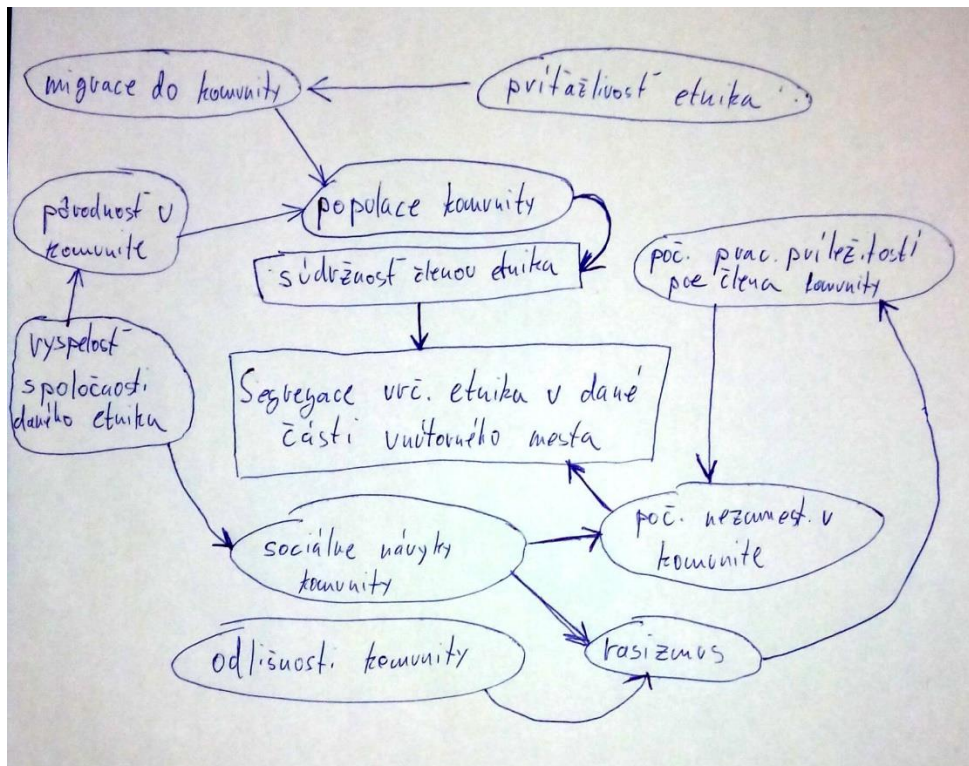 migrace do komunity
príťažlivosť etnika
pôvodnosť v
komunite
populace komunity
súdržnosť členov etnika
poč. prac. príležitostí
pre člena komunity
vyspelosť
spoločnosti
daného etnika
Segregace urč. etnika v dané
části vnútorného mesta
sociálne návyky
komunity
poč. nezamest. v
komunite
odlišnosti komunity
rasizmus